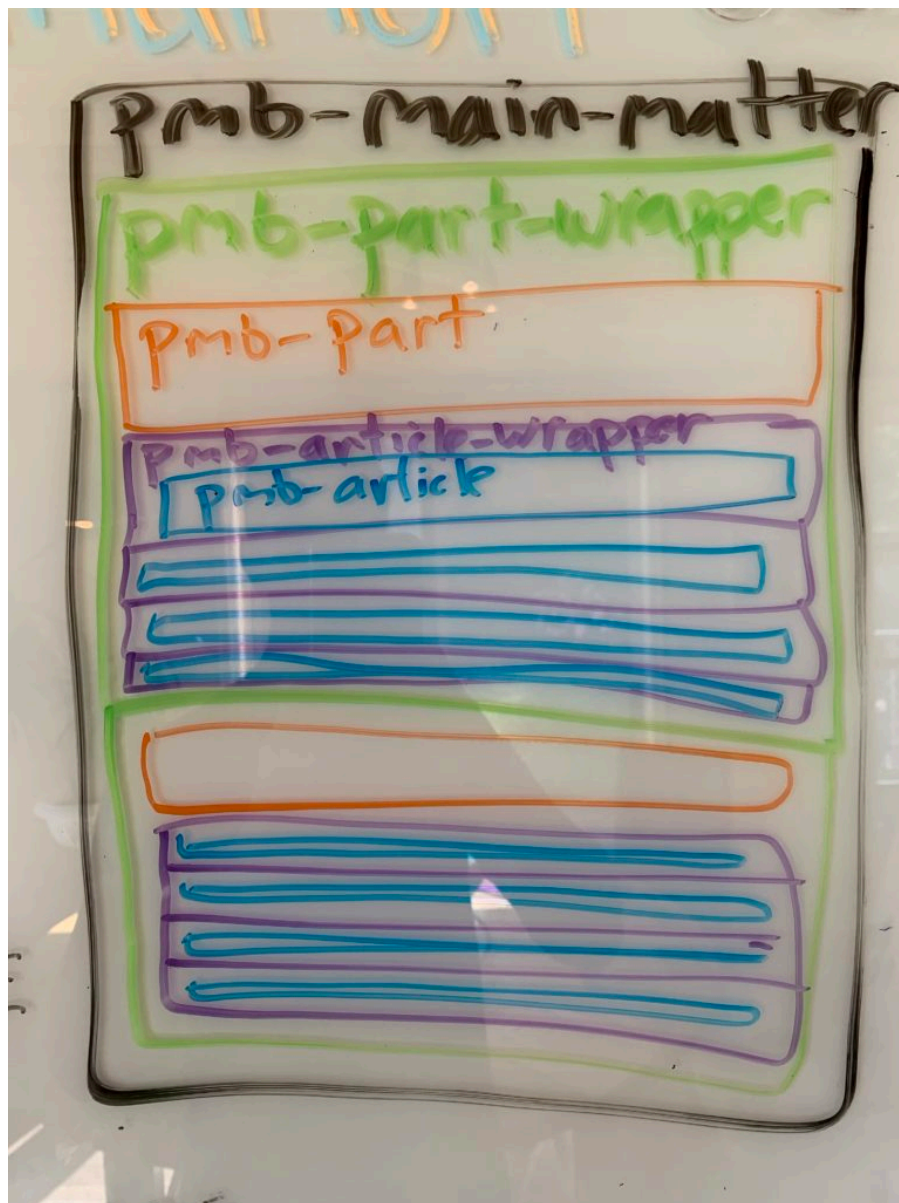 pmb-main-matter
pmb-part-wrapper
pmb-part
pmb-article-wrapper
pmb-article